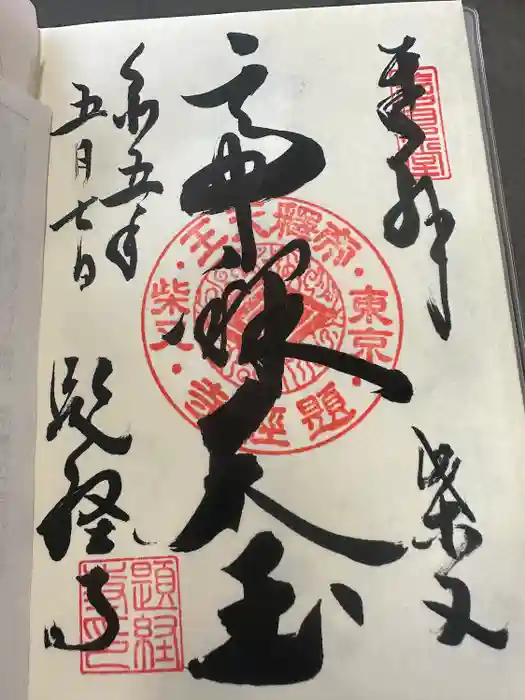 奉拝
柴又
帝釈天王
令五年
五月七日
題経寺
帝釋天王
東京
柴又
題經寺
題経
寺印